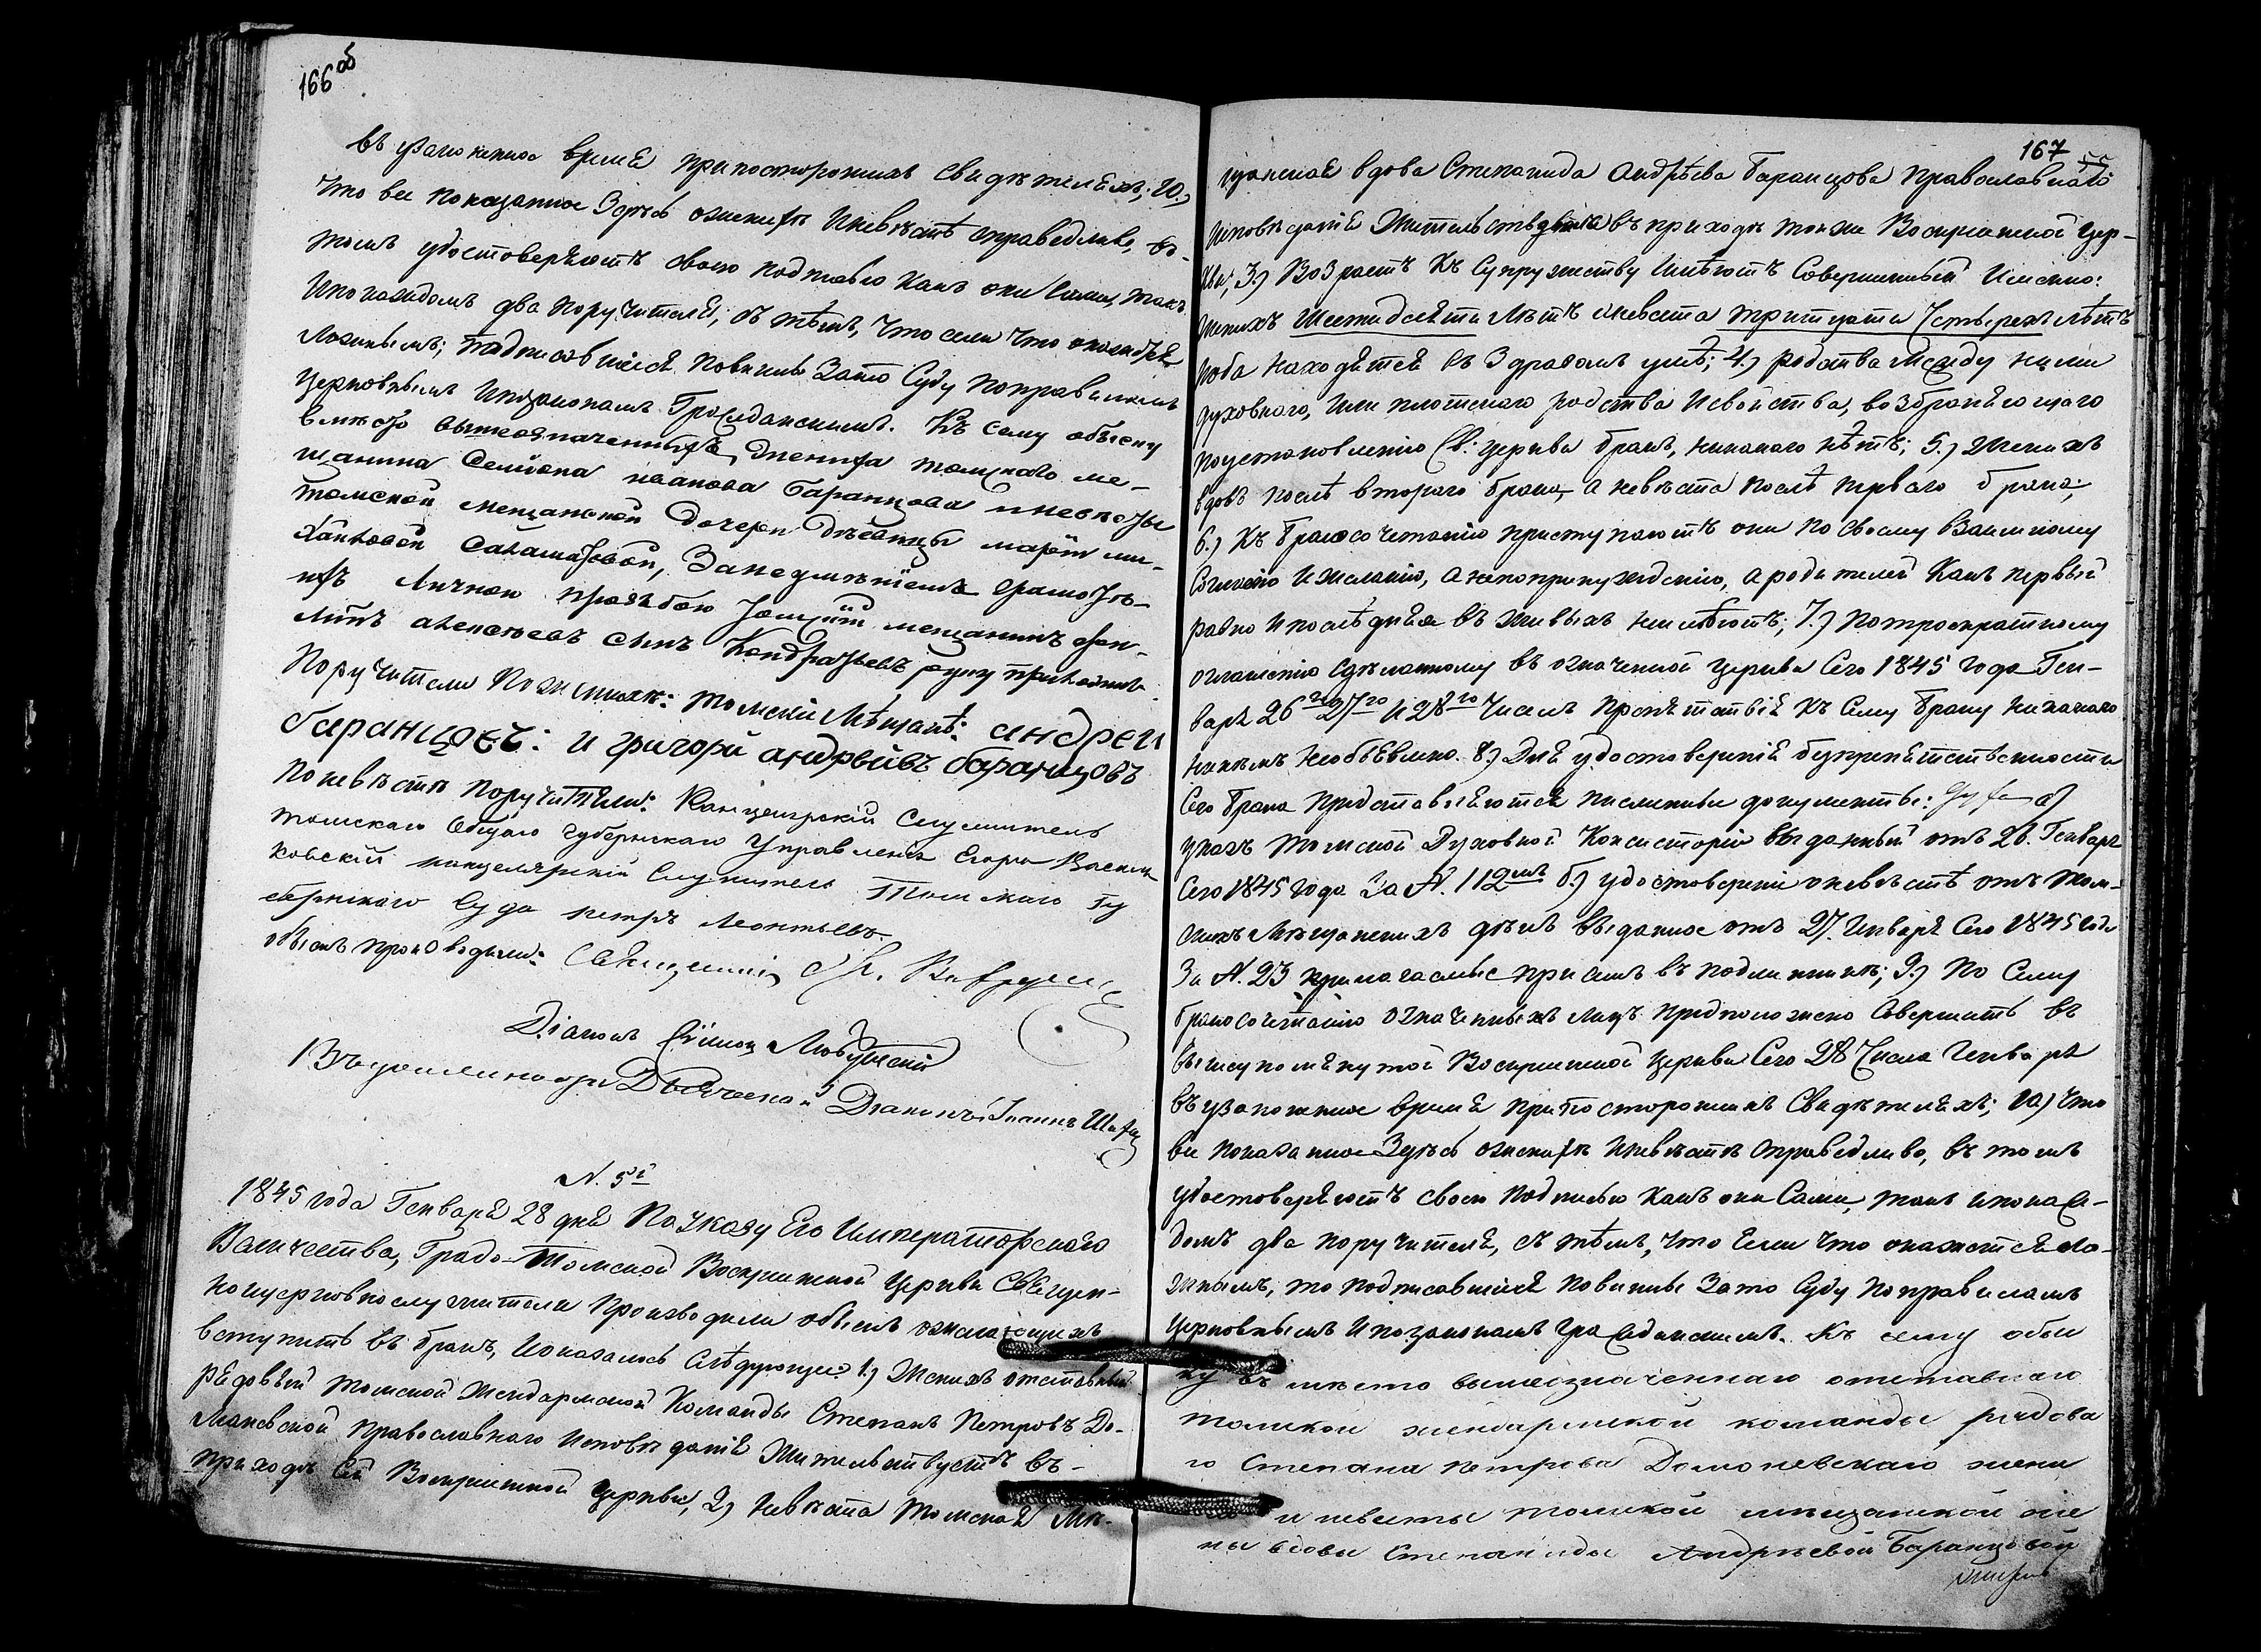 166 об
въ узаконенное время при постороннихъ свидѣтеляхъ; 10.,
что все показанное здѣсь о женихѣ и невѣстѣ справедливо, въ
томъ удостовѣряютъ своею подписью какъ они сами, такъ
и по каждомъ два поручителя, съ тѣмъ, что если что окажется
ложнымъ; то подписавшіеся повинны за то суду по правиламъ
церковнымъ и по законамъ гражданскимъ. Къ сему обыску
вмѣсто вышеозначенныхъ жениха томскаго ме-
щанина Семіона Иванова Баранцова и невѣсты
томской мещанской дочери дѣвицы Маріи Ми-
хайловой, за неумѣніемъ грамотѣ
ихъ личною прозьбою томскій мещанинъ
Алексѣевъ сынъ Кондратьевъ руку приложилъ.
Поручители по женихѣ: томскіи мѣщанѣ: андреи
баранцовъ: и григорѣй андрѣивъ баранцовъ
По невѣстѣ поручители: Канцелярскій служитель
Томскаго Общаго Губернскаго Управленія Егоръ
ковскій канцелярскій служитель Томскаго Гу
бернскаго Суда петръ Леонтьевъ.
обыскъ производили: Священникъ
Діаконъ Сѵмеонъ Любу
въ должности Дьяческой Діаконъ Іоаннъ
N. 5й
1845 года Генваря 28 дня По указу Его Императорскаго
Величества, Градо-Томской Воскресенской Церкви Священ-
ноцерковнослужители производили обыскъ о желающихъ
вступить въ бракъ, и оказалось слѣдующее: 1.) Женихъ отставный
рядовый Томской Жендармской Команды Степанъ Петровъ До-
маневской православнаго исповѣданія жительствуетъ въ-
приходѣ сей Воскресенской церкви, 2.) Невѣста Томская Мѣ-
167
щанская вдова Степанида Андрѣева Баранцова православнаго
исповѣданія жительствуетъ въ приходѣ тойже Воскресенской цер-
кви, 3.) Возрастъ къ супружеству имѣютъ совершенный и именно:
женихъ шестидесяти лѣтъ а невѣста тритцати четырехъ лѣтъ
и оба находятся въ здравомъ умѣ; 4.) родства между ними
духовнаго, или плотскаго родства и свойства, возбраняющаго
по установленію Св: церкви бракъ, никакого нѣтъ; 5.) Женихъ
вдовъ послѣ втораго брака, а невѣста послѣ перваго брака;
6.) Къ бракосочетанію приступаютъ они по своему взаимному
согласію и желанію, а не по принужденію, а родителей какъ первый
равно и послѣдняя въ живыхъ не имѣютъ; 7.) По троекратному
оглашенію сдѣланному въ означенной церкви сего 1845 года Ген-
варя 26го 27го и 28го чиселъ препятствія къ сему браку никакого
никѣмъ не объявлено. 8.) Для удостоверенія безпрепятственности
сего брака представляются писменные документы:
указъ Томской Духовной Консисторіи выданный отъ 26. Генваря
сего 1845 года за N. 112мъ б.) удостовереніе о невѣстѣ отъ Том-
скихъ Мѣщанскихъ дѣлъ выданное отъ 27. Генваря сего 1845 года
за N. 23 прилагаемые при семъ въ подлинникѣ; 9.) По сему
бракосочетанію означенныхъ лицъ предположено совершить въ
вышеупомянутой Воскресенской церкви сего 28 числа Генваря
въ узаконенное время при постороннихъ свидѣтеляхъ; 10.) Что
все показанное здѣсь о женихѣ и невѣстѣ справедливо, въ томъ
удостоверяютъ своею подписью какъ они сами, такъ и по каж-
домъ два поручителя, съ тѣмъ, что если что окажется ло-
жнымъ, то подписавшіеся повинны за то суду по правиламъ
церковнымъ и по законамъ гражданскимъ. Къ сему обы
ску въ мѣсто вышеозначеннаго отставнаго
томской жендармской команды рядова
го Степана петрова Домоневскаго жени
и невѣсты томской мѣщанской же
ны вдовы Степаниды Андрѣевой Баранцовой